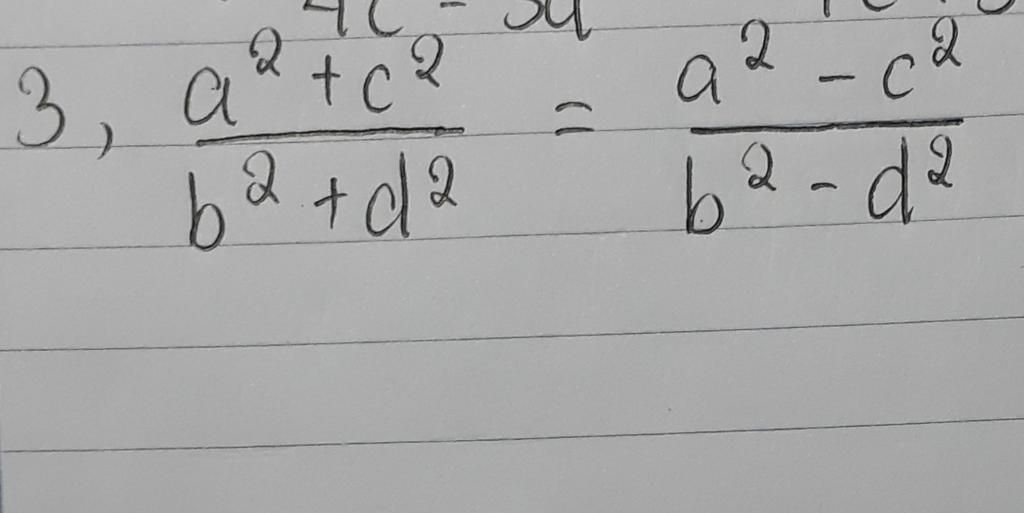 3, a² + c² / b² + d² = a² - c² / b² - d²